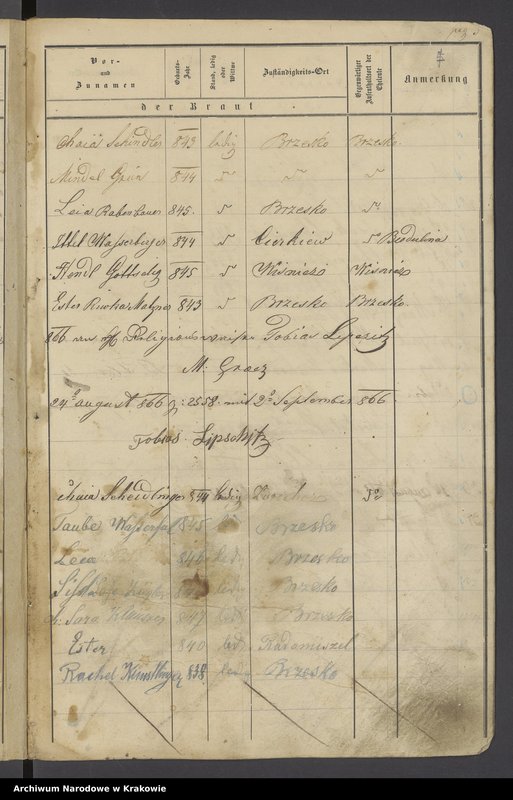 Vor- und Zunamen
Geburts-Jahr
Stand, ledig oder Wittwe
Zuständigkeits-Ort
Gegenwärtiger Aufenthaltsort der Eheleute
Anmerkung
der Braut
Chaia Schindler 843 ledig Brzesko Brzesko
Mindel Grün 844 dº dº dº
Leia Rabenbauer 845. dº Brzesko dº
Ettel Wasserberger 844 dº dº
Hendl Gottselig 845 dº Wisnicz Wisnicz
Ester Metzger 843 dº Brzesko Brzesko
866 Religions Tobias Lipszitz
M. Gracz
24º august 866 z: 2558. mit 2º September 866
Tobias Lipschitz
Chaia Scheidlinger 844 ledig dº
Taube 845 Brzesko
Leea 846 ledi Brzesko
ledi Brzesko
Sara Klausner 847 ledi Brzesko
Ester 840 led Radomiszel
Rachel Künstlinger 838 ledi Brzesko
Archiwum Narodowe w Krakowie